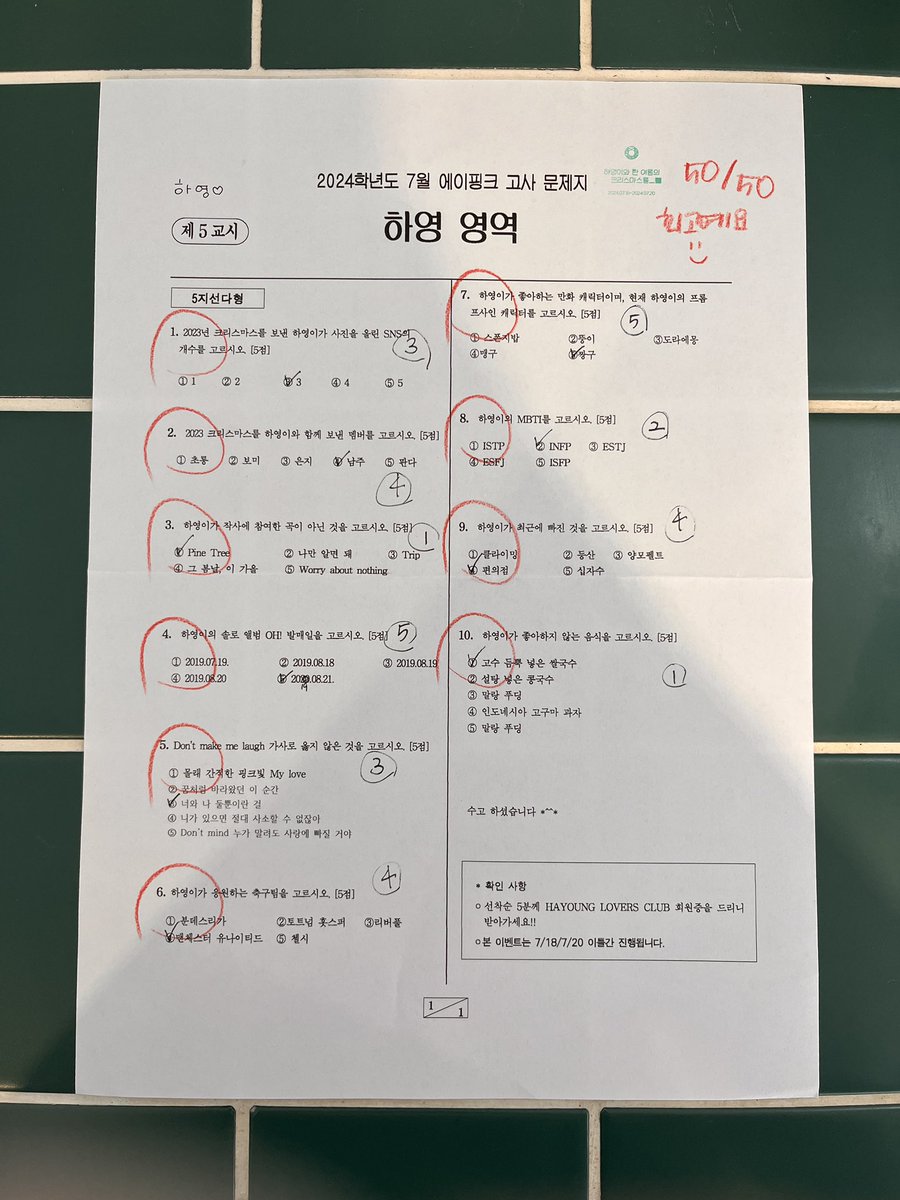 하영♡
2024학년도 7월 에이핑크 고사 문제지
하영이와 한 여름의
크리스마스를_
50/50
최고예요
제 5 교시
하영 영역
5지선다형
1. 2023년 크리스마스를 보낸 하영이가 사진을 올린 SNS의
개수를 고르시오. [5점]
③
① 1 ② 2 ③ 3 ④ 4 ⑤ 5
2. 2023 크리스마스를 하영이와 함께 보낸 멤버를 고르시오. [5점]
① 초롱 ② 보미 ③ 은지 ④ 남주 ⑤ 판다
④
3. 하영이가 작사에 참여한 곡이 아닌 것을 고르시오. [5점]
①
① Pine Tree ② 나만 알면 돼 ③ Trip
④ 그 봄날, 이 가을 ⑤ Worry about nothing
4. 하영이의 솔로 앨범 OH! 발매일을 고르시오. [5점]
⑤
① 2019.07.19. ② 2019.08.18 ③ 2019.08.19
④ 2019.08.20 ⑤ 2020.08.21.
19
5. Don't make me laugh 가사로 옳지 않은 것을 고르시오. [5점]
③
① 몰래 간직한 핑크빛 My love
② 꿈처럼 바라왔던 이 순간
③ 너와 나 둘뿐이란 걸
④ 니가 있으면 절대 사소할 수 없잖아
⑤ Don't mind 누가 말려도 사랑에 빠질 거야
6. 하영이가 응원하는 축구팀을 고르시오. [5점]
④
① 분데스리가 ②토트넘 홋스퍼 ③리버풀
④맨체스터 유나이티드 ⑤ 첼시
7. 하영이가 좋아하는 만화 캐릭터이며, 현재 하영이의 프롬
프사인 캐릭터를 고르시오. [5점]
⑤
① 스폰지밥 ②뚱이 ③도라에몽
④맹구 ⑤짱구
8. 하영이의 MBTI를 고르시오. [5점]
②
① ISTP ② INFP ③ ESTJ
④ ESFJ ⑤ ISFP
9. 하영이가 최근에 빠진 것을 고르시오. [5점]
④
①클라이밍 ② 등산 ③ 양모펠트
④ 편의점 ⑤ 십자수
10. 하영이가 좋아하지 않는 음식을 고르시오. [5점]
① 고수 듬뿍 넣은 쌀국수
② 설탕 넣은 콩국수
①
③ 말랑 푸딩
④ 인도네시아 고구마 과자
⑤ 말랑 푸딩
수고 하셨습니다 *^^*
* 확인 사항
○ 선착순 5분께 HAYOUNG LOVERS CLUB 회원증을 드리니
받아가세요!!
○본 이벤트는 7/18/7/20 이틀간 진행됩니다.
1
1